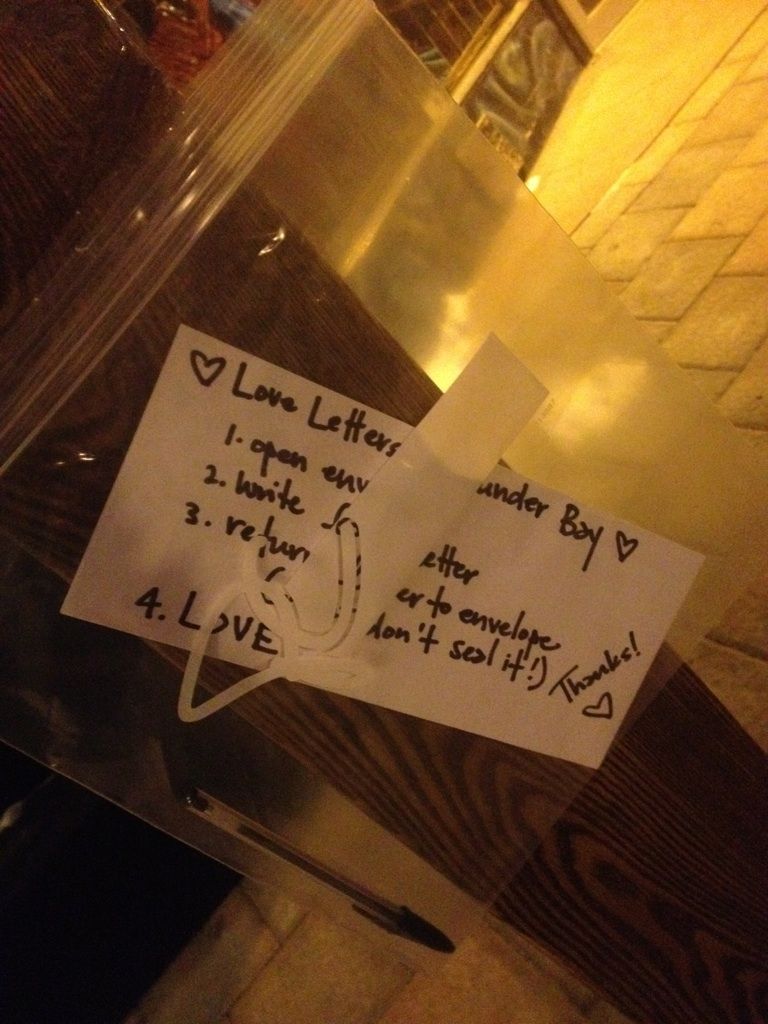 ♡ Love Letters under Bay ♡
1. open env
2. write etter
3. return er to envelope
don't seal it!)
4. LOVE
Thanks! ♡